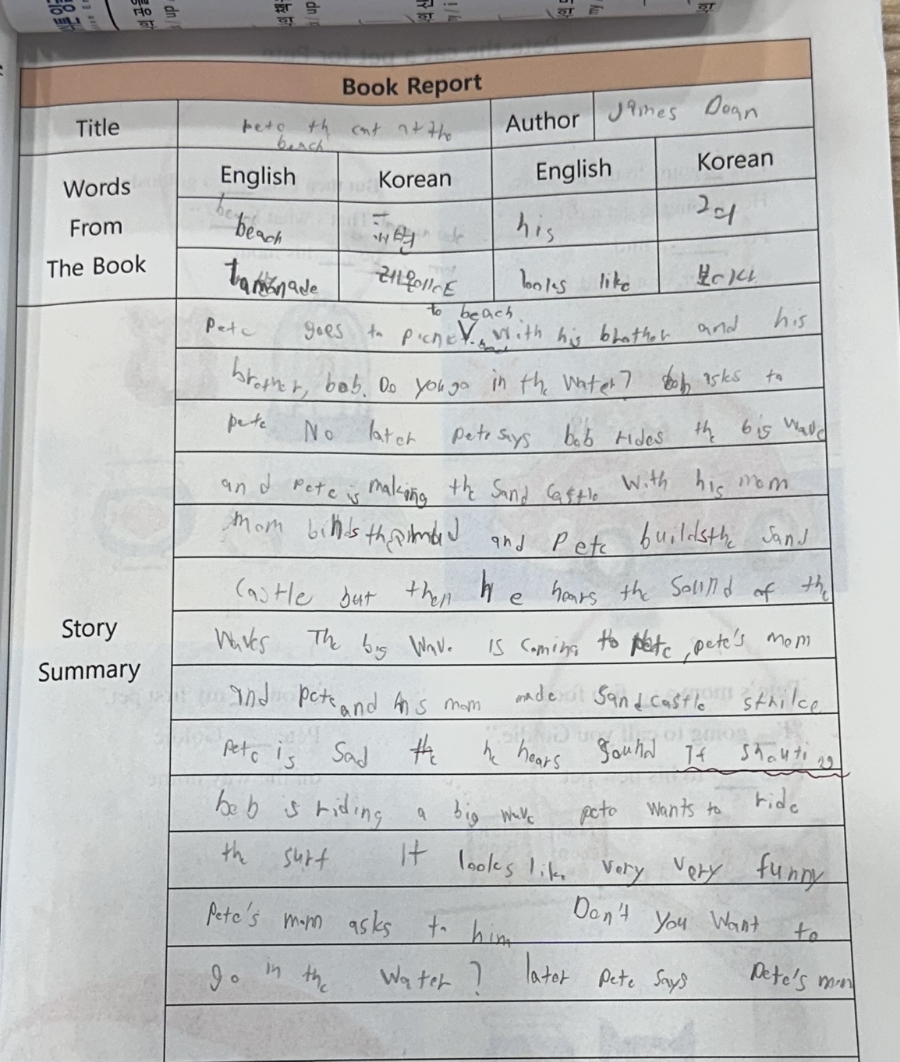 Book Report
Title
peto th cat at the
beach
Author
James Doan
Words
From
The Book
English
Korean
English
Korean
beach
해변
his
그의
레모네이드
looks like
to beach
Pete goes to picnic with his brother and his
brother, bob. Do you go in the water? bob asks to
pete No later pete says bob rides the big wave
and pete is making the Sand Castle with his mom
Mom and Pete builds the Sand
Castle but then he hears the Sound of the
Waves The big Wave is coming to pete, pete's mom
and pete and his mom made Sandcastle
Pete is Sad he hears Sound It Shouting
bob is riding a big wave pete wants to ride
the surf It looks like very very funny
Pete's mom asks to him Don't you Want to
go in the Water? later pete says Pete's mom
Story
Summary